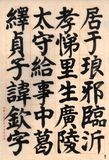 居于琅邪臨沂
孝悌里生廣陵
太守給事中葛
繹貞子諱欽字